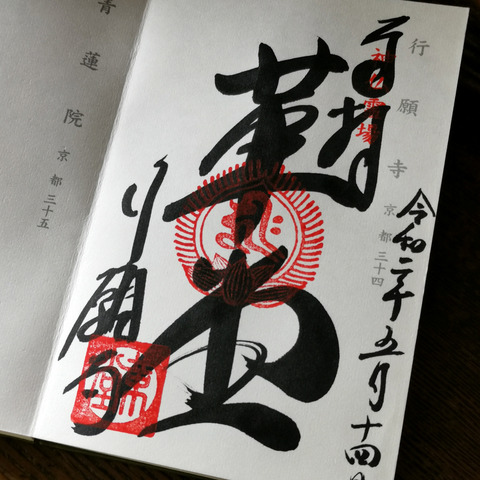 行願寺 京都 三十四
奉拝
神仏霊場
令和二年五月十四日
革堂
行願寺
青蓮院 京都 三十五